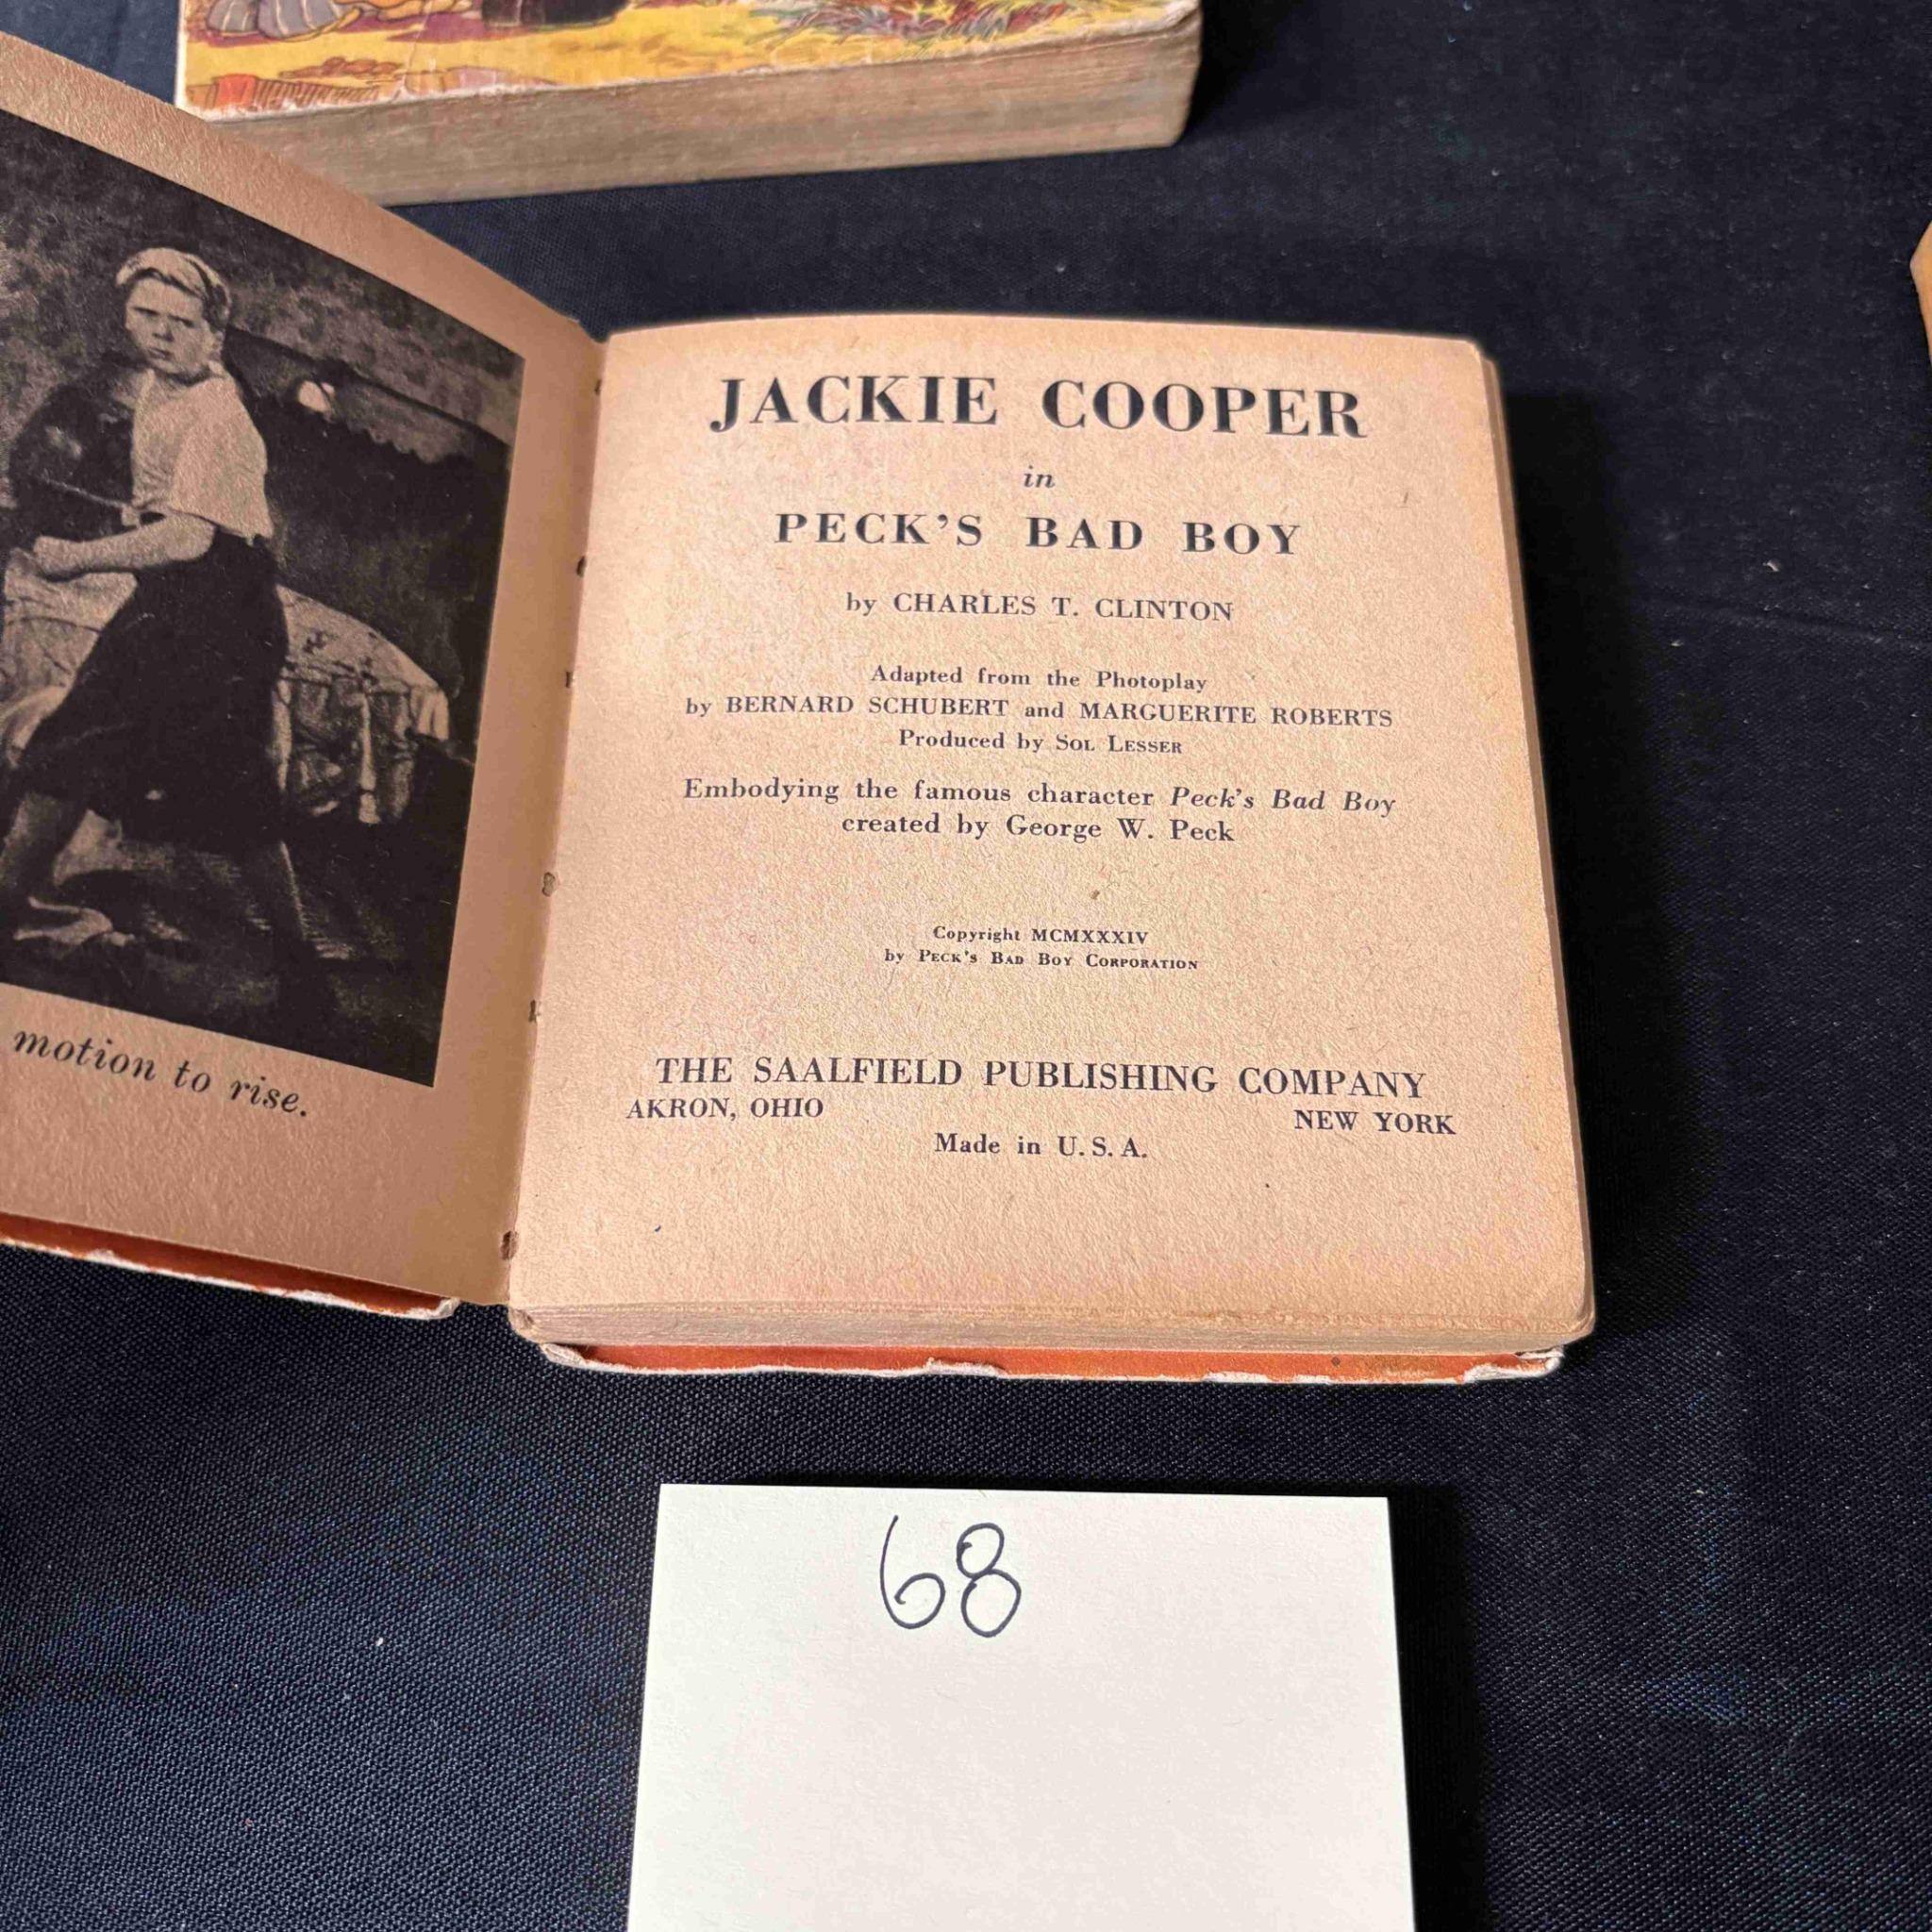 motion to rise.
JACKIE COOPER
in
PECK'S BAD BOY
by CHARLES T. CLINTON
Adapted from the Photoplay
by BERNARD SCHUBERT and MARGUERITE ROBERTS
Produced by SOL LESSER
Embodying the famous character Peck's Bad Boy
created by George W. Peck
Copyright MCMXXXIV
by PECK'S BAD BOY CORPORATION
THE SAALFIELD PUBLISHING COMPANY
AKRON, OHIO NEW YORK
Made in U. S. A.
68